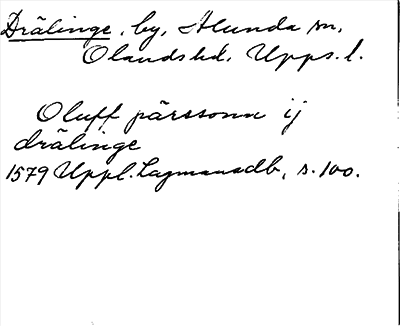 Drälinge, by, Alunda sn,
Olands hd, Upps. l.
Oluff pärssonn ij
drälinge
1579 Uppl. Lagmansdb, s. 100.